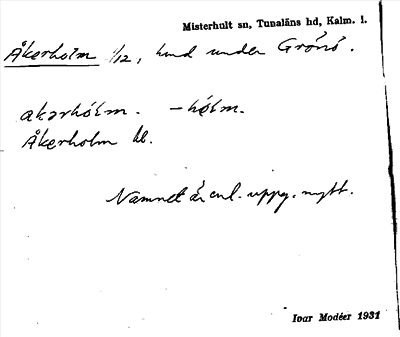 Misterhult sn, Tunaläns hd, Kalm. l.
Åkerholm 1/12, hmd under Grönö.
akərhólm. – hólm.
Åkerholm kl.
Namnet är enl. uppg. nytt.
Ivar Modéer 1931